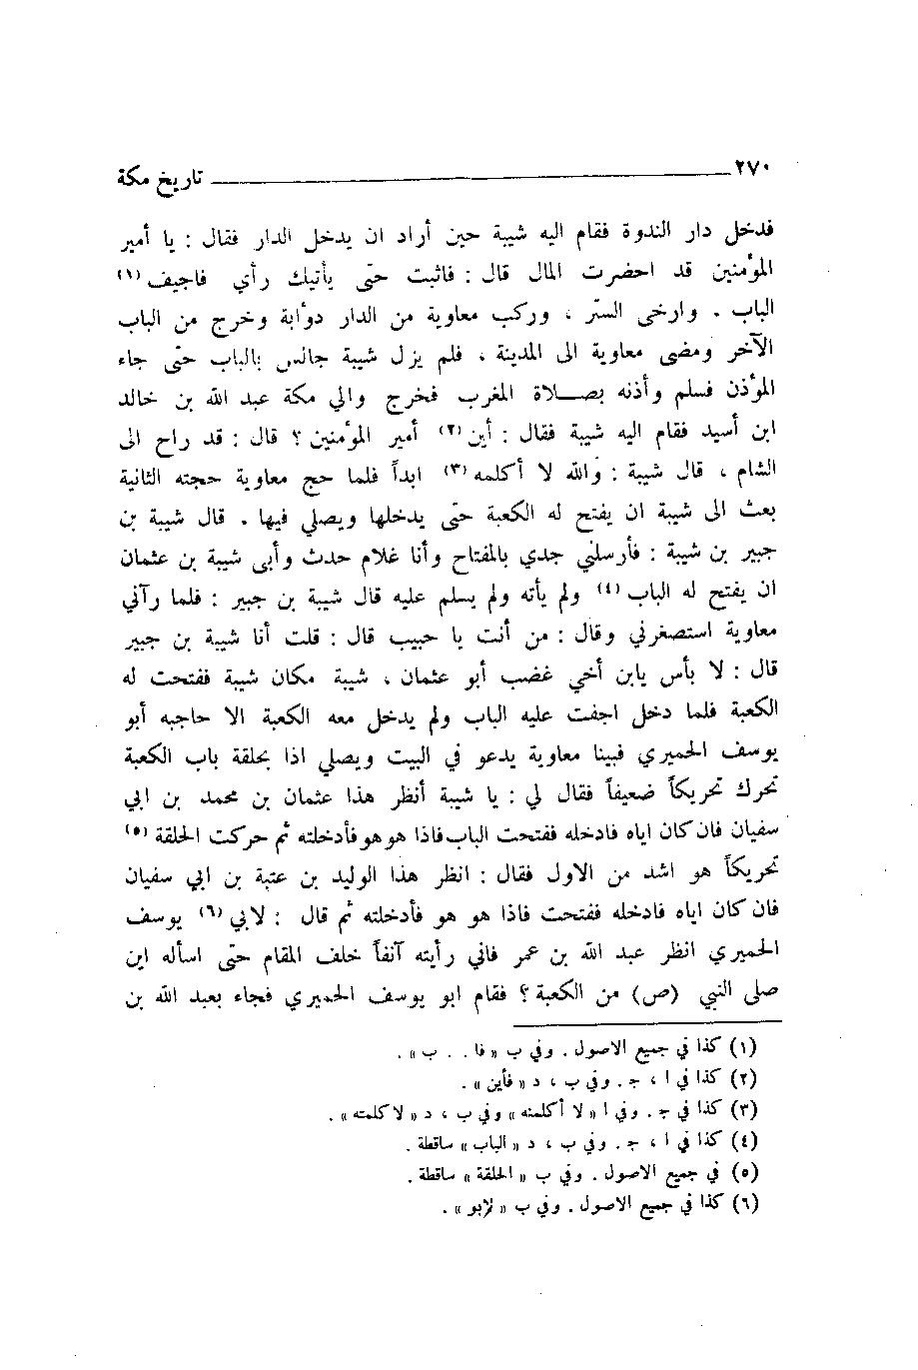 ٢٧٠ ــــــــــــــــــــــــــــــــــــــــــــــــ تاريخ مكة
فدخل دار الندوة فقام اليه شيبة حين أراد ان يدخل الدار فقال : يا أمير
المؤمنين قد احضرت المال قال : فاثبت حتى يأتيك رأي فاجيف (١)
الباب . وارخى الستر ، وركب معاوية من الدار دوأبة وخرج من الباب
الآخر ومضى معاوية الى المدينة ، فلم يزل شيبة جالس بالباب حتى جاء
المؤذن فسلم وأذنه بصـــلاة المغرب فخرج والي مكة عبد الله بن خالد
ابن أسيد فقام اليه شيبة فقال : أين (٢) أمير المؤمنين ؟ قال : قد راح الى
الشام ، قال شيبة : والله لا أكلمه (٣) ابداً فلما حج معاوية حجته الثانية
بعث الى شيبة ان يفتح له الكعبة حتى يدخلها ويصلي فيها . قال شيبة بن
جبير بن شيبة : فأرسلني جدي بالمفتاح وأنا غلام حدث وأبى شيبة بن عثمان
ان يفتح له الباب (٤) ولم يأته ولم يسلم عليه قال شيبة بن جبير : فلما رآني
معاوية استصغرني وقال : من أنت يا حبيب قال : قلت أنا شيبة بن جبير
قال : لا بأس يابن أخي غضب أبو عثمان ، شيبة مكان شيبة ففتحت له
الكعبة فلما دخل اجفت عليه الباب ولم يدخل معه الكعبة الا حاجبه أبو
يوسف الحميري فبينا معاوية يدعو في البيت ويصلي اذا بحلقة باب الكعبة
تحرك تحريكاً ضعيفاً فقال لي : يا شيبة أنظر هذا عثمان بن محمد بن ابي
سفيان فان كان اياه فادخله ففتحت الباب فاذا هو هو فأدخلته ثم حركت الحلقة (٥)
تحريكاً هو اشد من الاول فقال : انظر هذا الوليد بن عتبة بن ابي سفيان
فان كان اياه فادخله ففتحت فاذا هو هو فأدخلته ثم قال : لابي (٦) يوسف
الحميري انظر عبد الله بن عمر فاني رأيته آنفاً خلف المقام حتى اسأله اين
صلى النبي (ص) من الكعبة ؟ فقام ابو يوسف الحميري فجاء بعبد الله بن
(١) كذا في جميع الاصول . وفي ب « فا . . ب » .
(٢) كذا في ا ، ج . وفي ب ، د « فأين » .
(٣) كذا في ج . وفي ا « لا أكلمنه » وفي ب ، د « لا كلمته » .
(٤) كذا في ا ، ج . وفي ب ، د « الباب » ساقطة .
(٥) في جميع الاصول . وفي ب « الحلقة » ساقطة .
(٦) كذا في جميع الاصول . وفي ب « لإبو » .